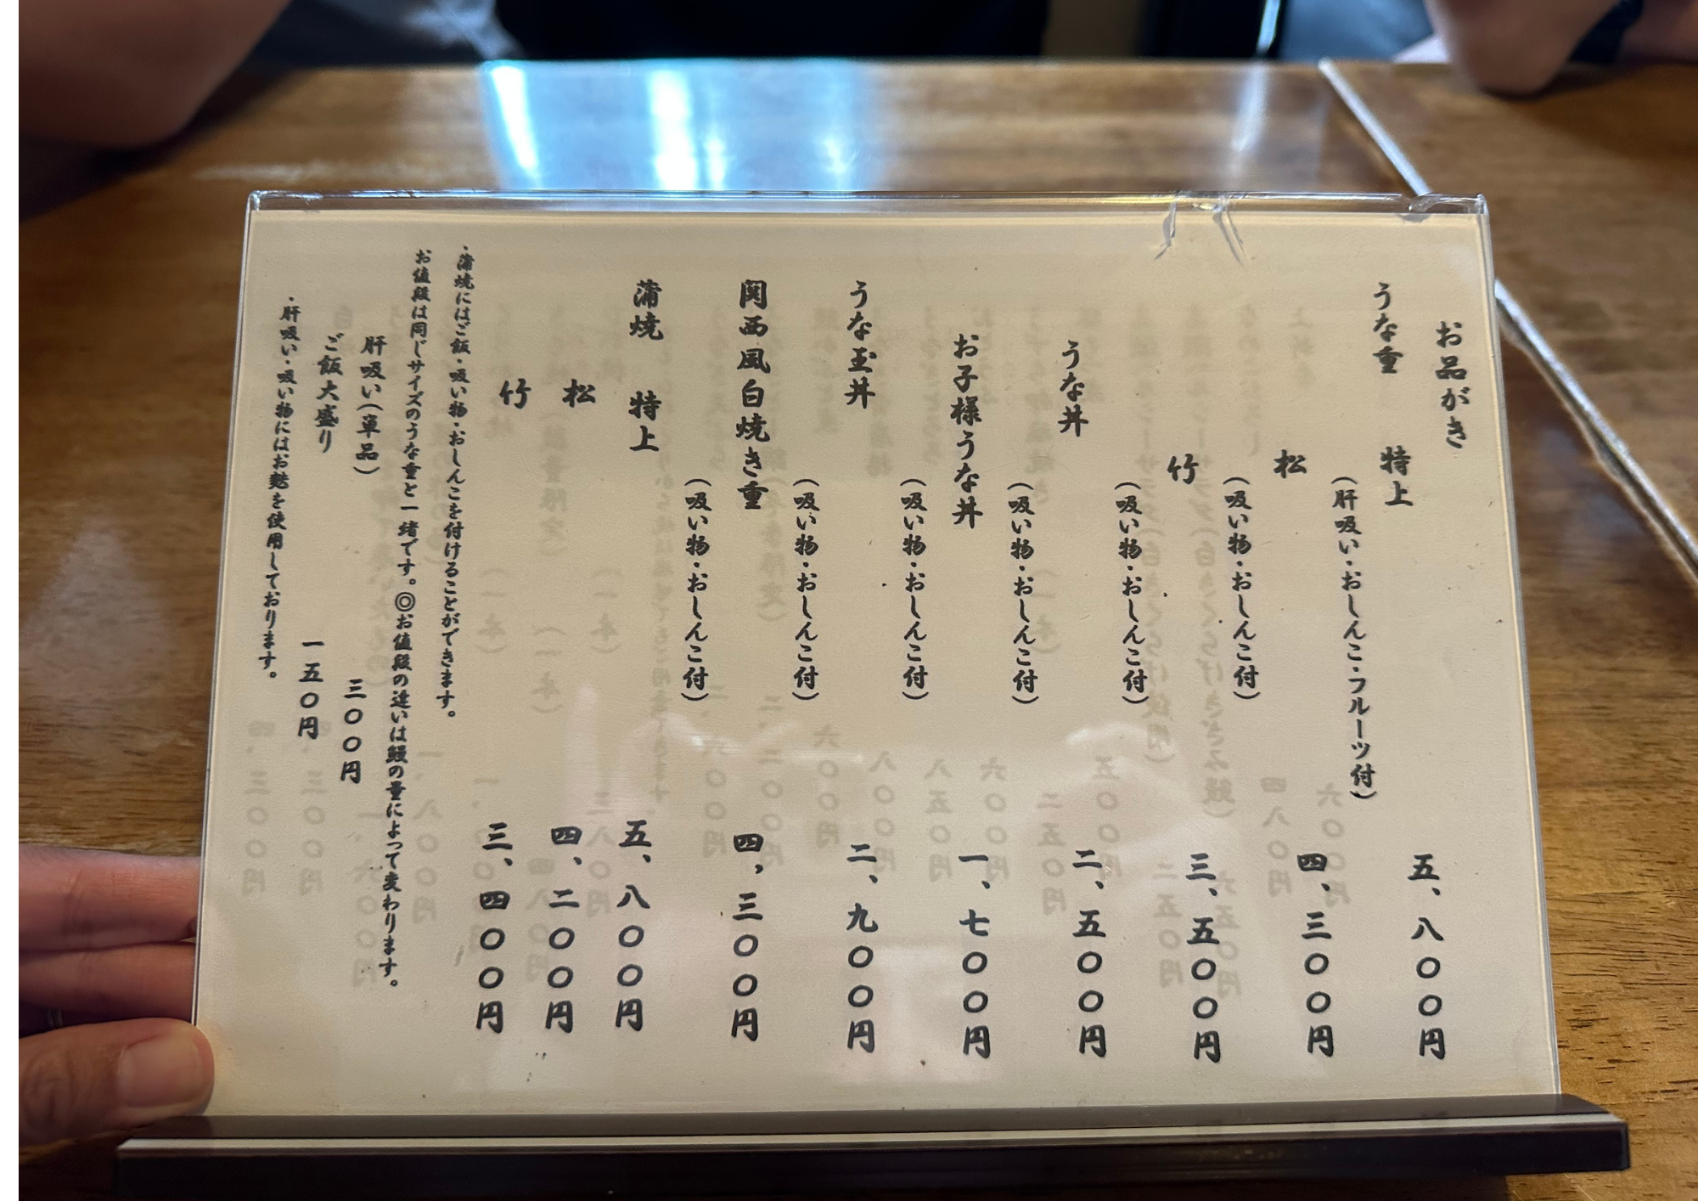 お品がき
うな重 特上 五、八〇〇円
(肝吸い・おしんこ・フルーツ付)
松 四、三〇〇円
(吸い物・おしんこ付)
竹 三、五〇〇円
(吸い物・おしんこ付)
うな丼 二、五〇〇円
(吸い物・おしんこ付)
お子様うな丼 一、七〇〇円
(吸い物・おしんこ付)
うな玉丼 二、九〇〇円
(吸い物・おしんこ付)
関西風白焼き重 四、三〇〇円
(吸い物・おしんこ付)
蒲焼 特上 五、八〇〇円
松 四、二〇〇円
竹 三、四〇〇円
・蒲焼にはご飯・吸い物・おしんこを付けることができます。
お値段は同じサイズのうな重と一緒です。◎お値段の違いは鰻の量によって変わります。
肝吸い(単品) 三〇〇円
ご飯大盛り 一五〇円
・肝吸い・吸い物にはお麩を使用しております。